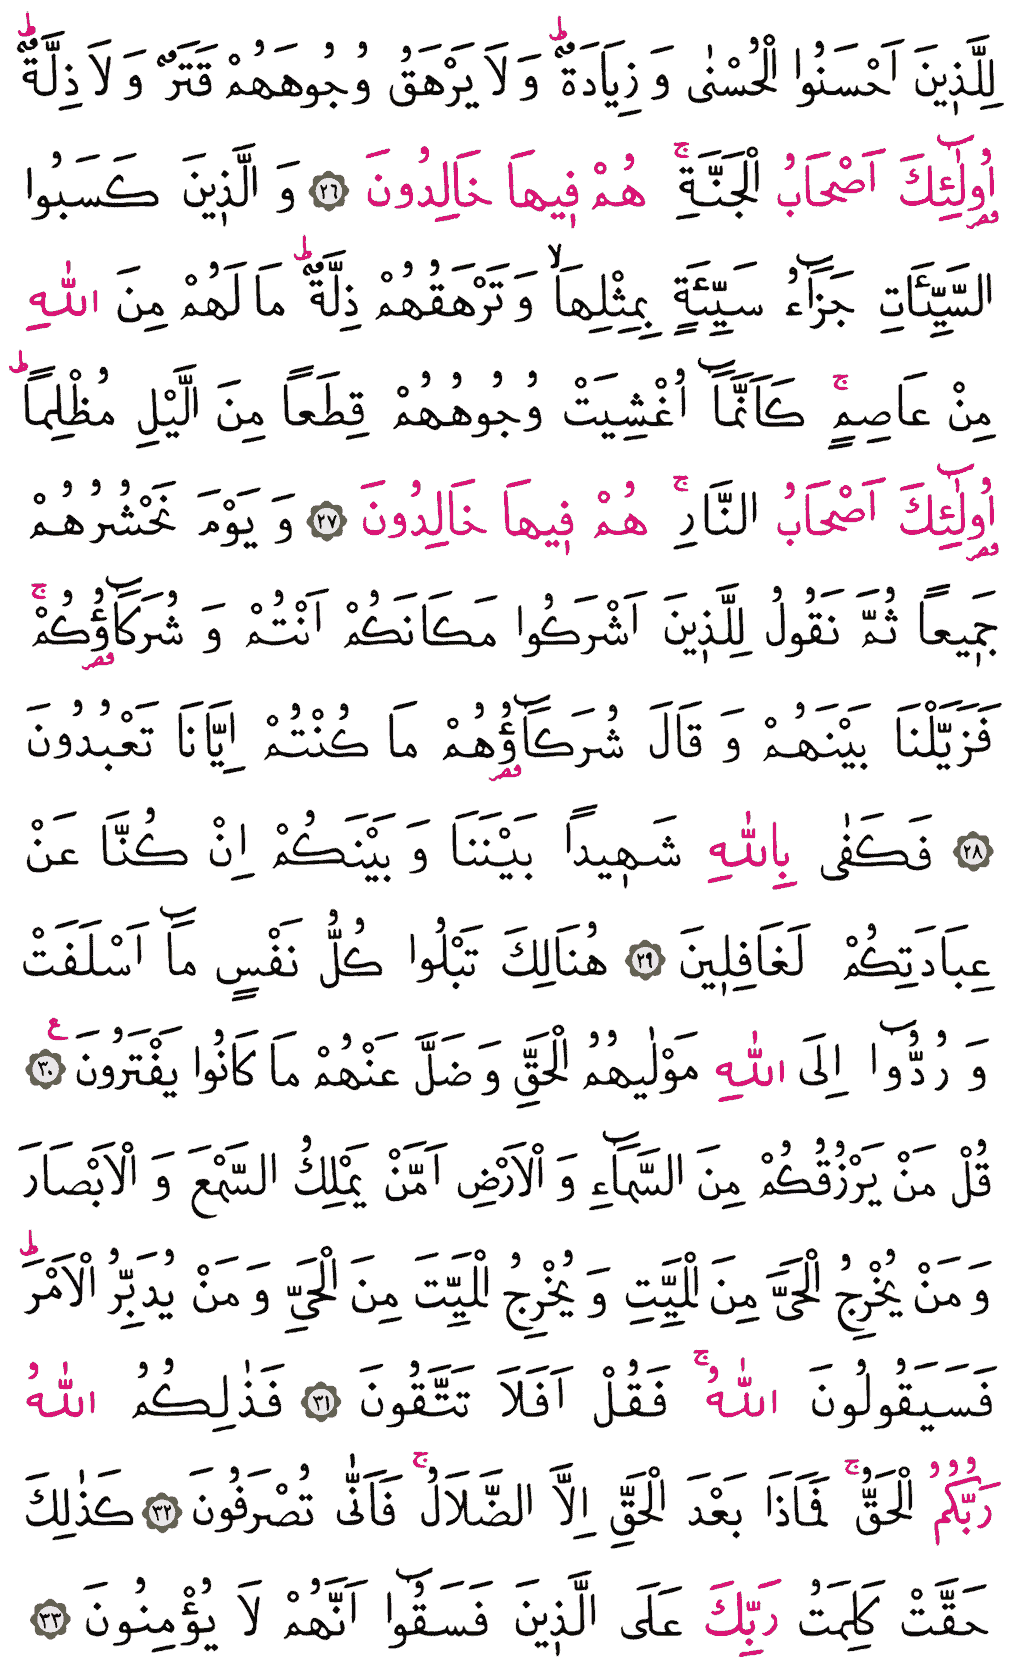 لِلَّذ۪ينَ اَحْسَنُوا الْحُسْنٰى وَ زِيَادَةٌۜ وَ لَا يَرْهَقُ وُجُوهَهُمْ قَتَرٌ وَ لَا ذِلَّةٌۜ
اُو۬لٰٓئِكَ اَصْحَابُ الْجَنَّةِۚ هُمْ ف۪يهَا خَالِدُونَ ﴿٢٦﴾ وَ الَّذ۪ينَ كَسَبُوا
السَّيِّـَٔاتِ جَزَٓاءُ سَيِّئَةٍ بِمِثْلِهَاۙ وَ تَرْهَقُهُمْ ذِلَّةٌۜ مَا لَهُمْ مِنَ اللّٰهِ
مِنْ عَاصِمٍۚ كَاَنَّمَٓا اُغْشِيَتْ وُجُوهُهُمْ قِطَعًا مِنَ الَّيْلِ مُظْلِمًاۜ
اُو۬لٰٓئِكَ اَصْحَابُ النَّارِۚ هُمْ ف۪يهَا خَالِدُونَ ﴿٢٧﴾ وَ يَوْمَ نَحْشُرُهُمْ
جَم۪يعًا ثُمَّ نَقُولُ لِلَّذ۪ينَ اَشْرَكُوا مَكَانَكُمْ اَنْتُمْ وَ شُرَكَٓاؤُ۬كُمْۚ
فَزَيَّلْنَا بَيْنَهُمْ وَ قَالَ شُرَكَٓاؤُ۬هُمْ مَا كُنْتُمْ اِيَّانَا تَعْبُدُونَ
﴿٢٨﴾ فَكَفٰى بِاللّٰهِ شَه۪يدًا بَيْنَنَا وَ بَيْنَكُمْ اِنْ كُنَّا عَنْ
عِبَادَتِكُمْ لَغَافِل۪ينَ ﴿٢٩﴾ هُنَالِكَ تَبْلُوا كُلُّ نَفْسٍ مَٓا اَسْلَفَتْ
وَ رُدُّٓوا اِلَى اللّٰهِ مَوْلٰيهُمُ الْحَقِّ وَ ضَلَّ عَنْهُمْ مَا كَانُوا يَفْتَرُونَ ﴿٣٠﴾ ع
قُلْ مَنْ يَرْزُقُكُمْ مِنَ السَّمَٓاءِ وَ الْاَرْضِ اَمَّنْ يَمْلِكُ السَّمْعَ وَ الْاَبْصَارَ
وَ مَنْ يُخْرِجُ الْحَيَّ مِنَ الْمَيِّتِ وَ يُخْرِجُ الْمَيِّتَ مِنَ الْحَيِّ وَ مَنْ يُدَبِّرُ الْاَمْرَۜ
فَسَيَقُولُونَ اللّٰهُۚ فَقُلْ اَفَلَا تَتَّقُونَ ﴿٣١﴾ فَذٰلِكُمُ اللّٰهُ
رَبُّكُمُ الْحَقُّۚ فَمَاذَا بَعْدَ الْحَقِّ اِلَّا الضَّلَالُۚ فَاَنّٰى تُصْرَفُونَ ﴿٣٢﴾ كَذٰلِكَ
حَقَّتْ كَلِمَتُ رَبِّكَ عَلَى الَّذ۪ينَ فَسَقُٓوا اَنَّهُمْ لَا يُؤْمِنُونَ ﴿٣٣﴾